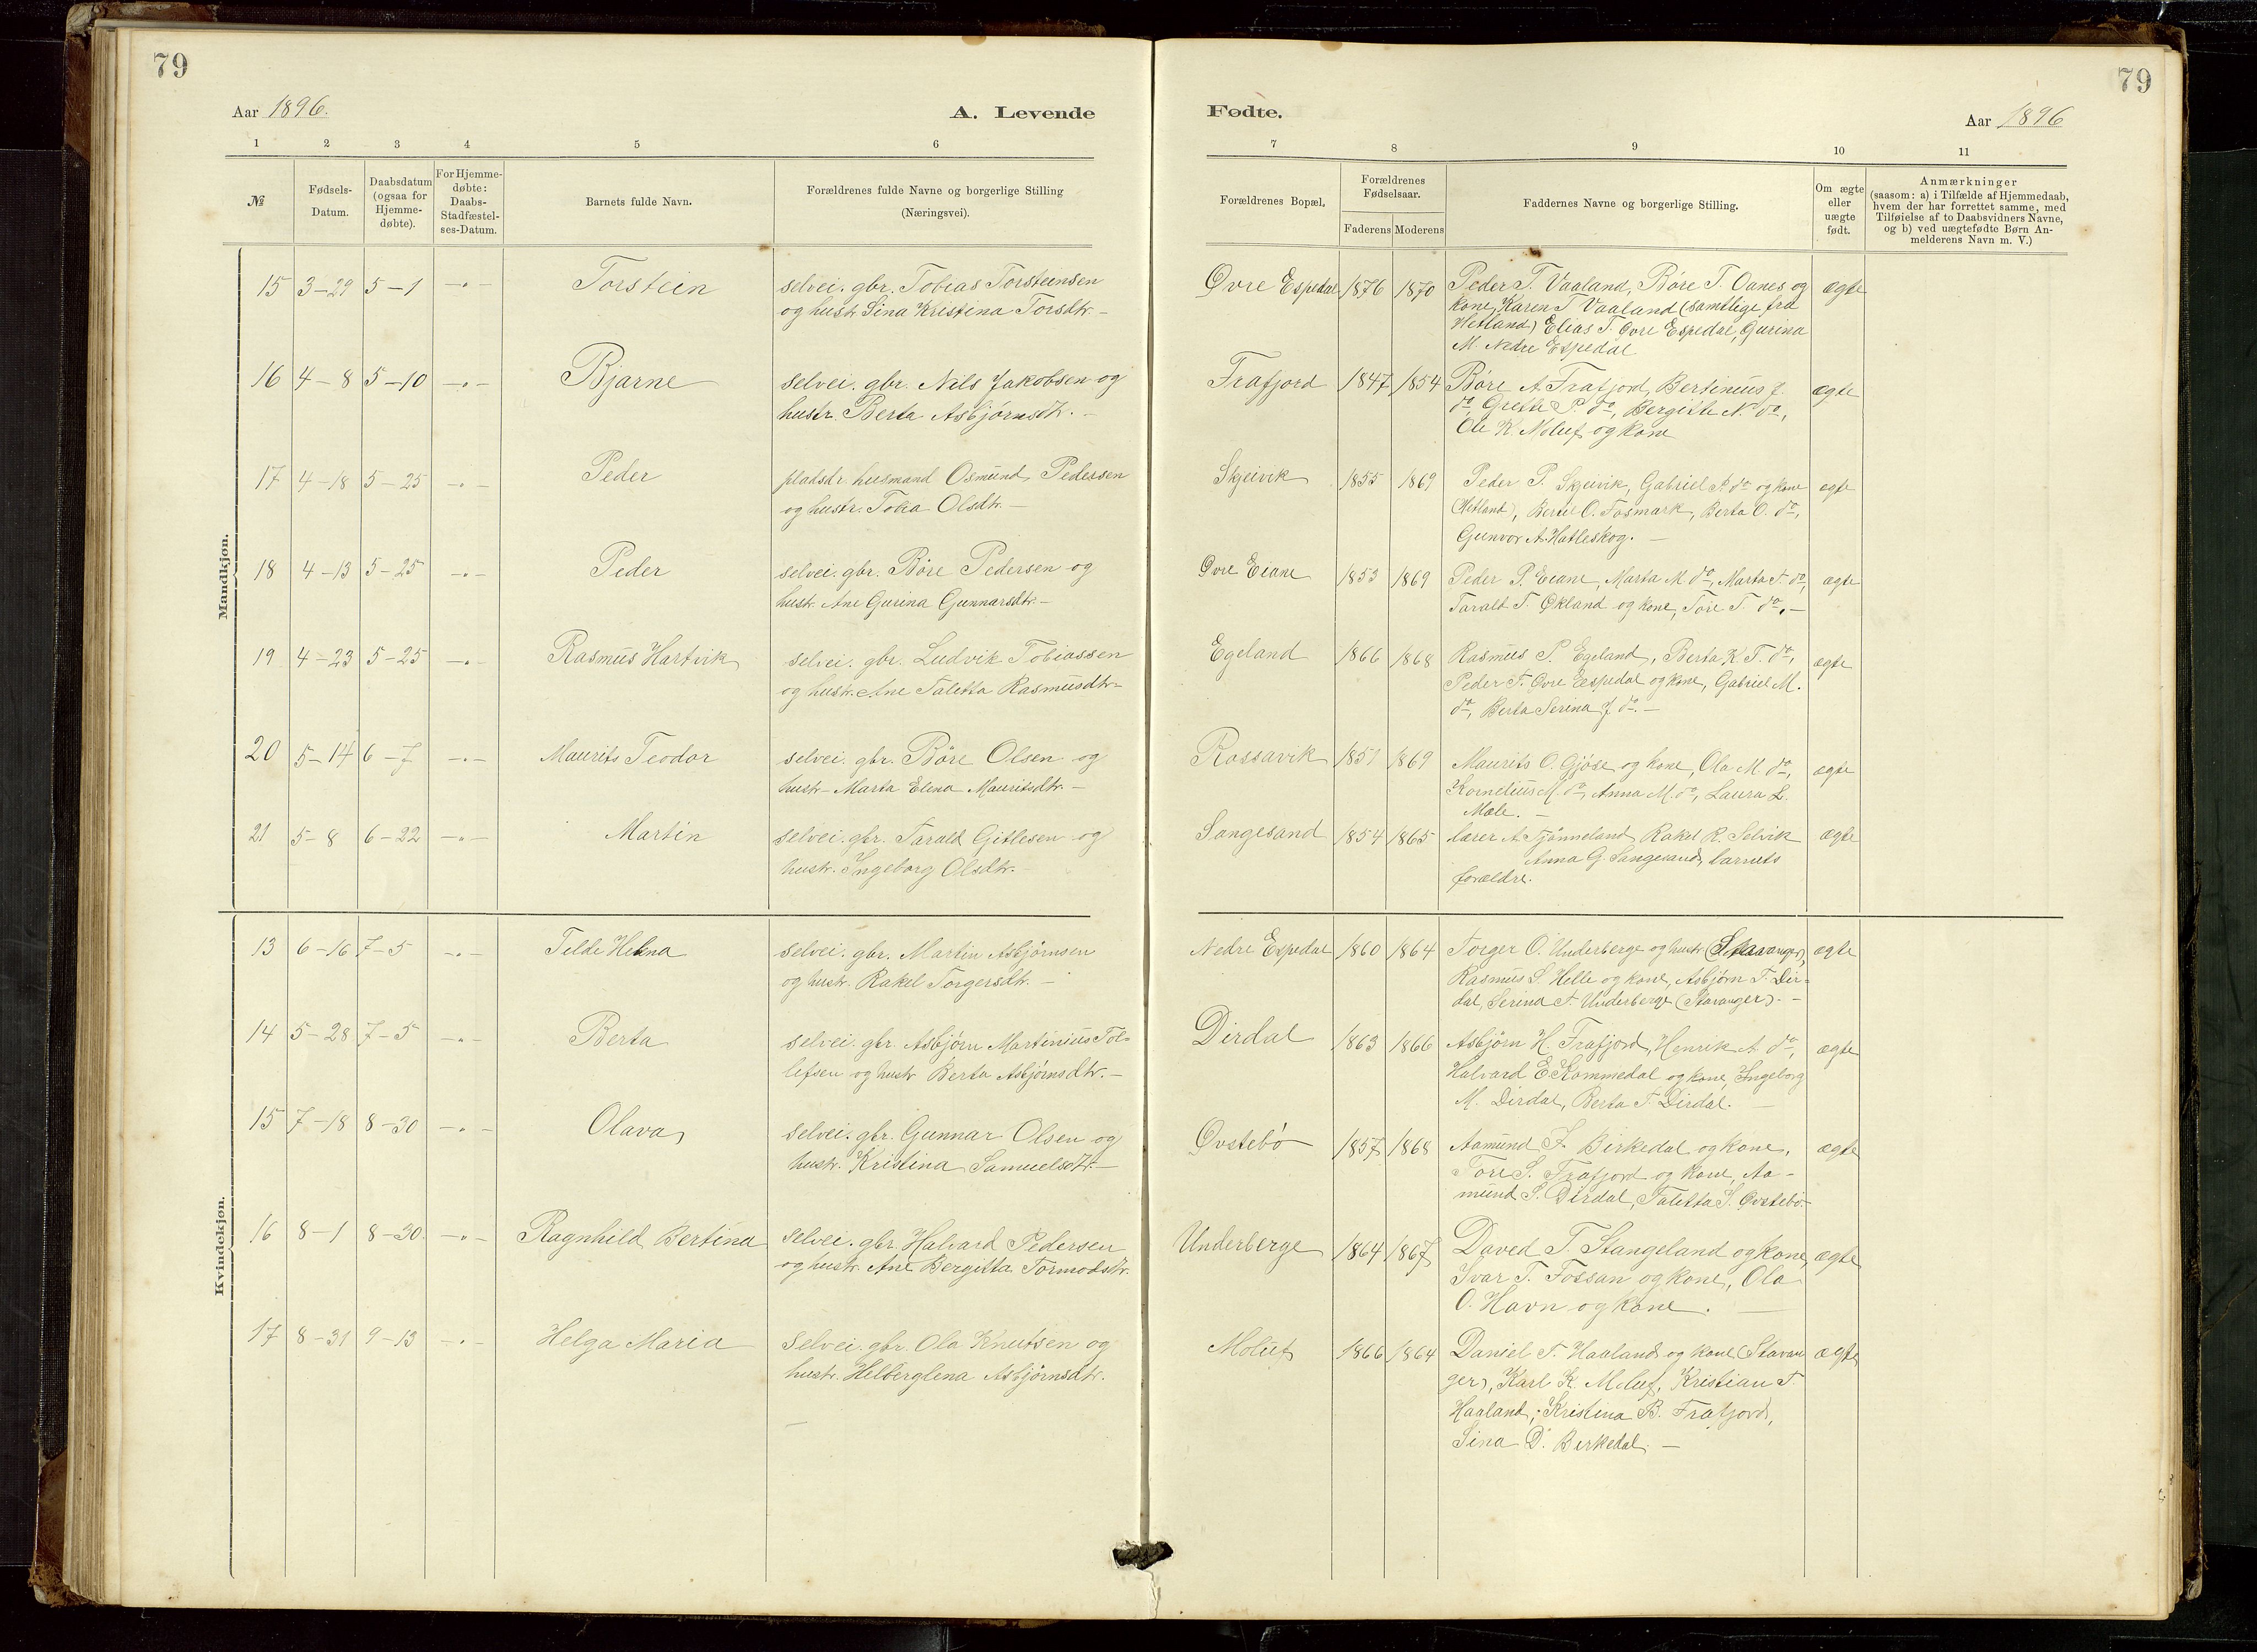 79
Aar 1896.
A. Levende
1 2 3 4 5 6
№
Fødsels-Datum.
Daabsdatum (ogsaa for Hjemmedøbte).
For Hjemmedøbte: Daabs-Stadfæstelses-Datum.
Barnets fulde Navn.
Forældrenes fulde Navne og borgerlige Stilling
(Næringsvei).
79
Fødte.
Aar 1896
7 8 9 10 11
Forældrenes Bopæl.
Forældrenes Fødselsaar.
Faderens Moderens
Faddernes Navne og borgerlige Stilling.
Om ægte eller uægte født.
Anmærkninger
(saasom: a) i Tilfælde af Hjemmedaab,
hvem der har forrettet samme, med
Tilføielse af to Daabsvidners Navne,
og b) ved uægtefødte Børn An-
melderens Navn m. V.)
Mandkjøn.
15 3-29 5-1 -"- Torstein selvei. gbr. Tobias Torsteinsen
og hustr. Sina Kristina Torsdtr. -
Øvre Espedal 1876 1870 Peder T. Vaaland, Böre T. Oanes og ægte
kone, Karen T. Vaaland (samtlige fra
Hetland) Elias T. Øvre Espedal, Gurina
M. Nedre Espedal
16 4-8 5-10 -"- Bjarne selvei. gbr. Nils Jakobsen og
hustr. Berta Asbjörnsdtr. -
Frafjord 1847 1854 Böre A. Frafjord, Bertinius J. ægte
do, Grette P. do, Bergitte N. do,
Ole K. Moluf og kone
17 4-18 5-25 -"- Peder pladsdr. husmand Osmund Pedersen
og hustr. Tobia Olsdtr. -
Skjeivik 1855 1869 Peder P. Skjeivik, Gabriel P. do og kone ægte
(Hetland), Bertil O. Fosmark, Berta O. do,
Gunvor A. Hatleskog. -
18 4-13 5-25 -"- Peder selvei. gbr. Böre Pedersen og
hustr. Ane Gurina Gunnarsdtr. -
Øvre Eiane 1853 1869 Peder P. Eiane, Marta M. do, Marta T. do, ægte
Tarald T. Økland og kone, Tore T. do. -
19 4-23 5-25 -"- Rasmus Hartvik selvei. gbr. Ludvik Tobiassen
og hustr. Ane Taletta Rasmusdtr. -
Egeland 1866 1868 Rasmus P. Egeland, Berta K. T. do, ægte
Peder T. Øvre Espedal og kone, Gabriel M.
do, Berta Serena J. do. -
20 5-14 6-7 -"- Maurits Teodor selvei. gbr. Böre Olsen og
hustr. Marta Elena Mauritsdtr. -
Rossavik 1851 1869 Maurits O. Gjöse og kone, Ola M. do, ægte
Kornelius M. do, Anna M. do, Laura L.
Mæle. -
21 5-8 6-22 -"- Martin selvei. gbr. Tarald Gitlesen og
hustr. Ingeborg Olsdtr. -
Sangesand 1854 1865 lærer A. Tjönneland, Rakel R. Selvik ægte
Anna G. Sangesand, barnets
forældre.
Kvindekjøn.
13 6-16 7-5 -"- Telde Helena selvei. gbr. Martin Asbjørnsen
og hustr. Rakel Torgersdtr. -
Nedre Espedal 1860 1864 Torger O. Underberge og hustr. (Stavanger), ægte
Rasmus S. Helle og kone, Asbjørn T. Dir-
dal, Serina T. Underberge (Stavanger). -
14 5-28 7-5 -"- Berta selvei. gbr. Asbjørn Martinius Tol-
lefsen og hustr. Berta Asbjørnsdtr. -
Dirdal 1863 1866 Asbjørn H. Frafjord, Henrik A. do, ægte
Halvard E. Kommedal og kone, Ingeborg
M. Dirdal, Berta T. Dirdal. -
15 7-18 8-30 -"- Olava selvei. gbr. Gunnar Olsen og
hustr. Kristina Samuelsdtr. -
Øvstebö 1857 1868 Aamund J. Birkedal og kone, ægte
Tore S. Frafjord og kone, Aa-
mund S. Dirdal, Taletta S. Øvstebö. -
16 8-1 8-30. -"- Ragnhild Bertina selvei. gbr. Halvard Pedersen
og hustr. Ane Bergitta Tormodsdtr.
Underberge 1864 1867 Daved T. Stangeland og kone, ægte
Ivar T. Fossan og kone, Ola
O. Havn og kone. -
17 8-31 9-13 -"- Helga Maria selvei. gbr. Ola Knutsen og
hustr. Helberglena Asbjørnsdtr.
Moluf 1866 1864 Daniel T. Haaland og kone (Stavan ægte
ger), Karl K. Moluf, Kristian T.
Haaland, Kristina B. Frafjord,
Sina D. Birkedal. -